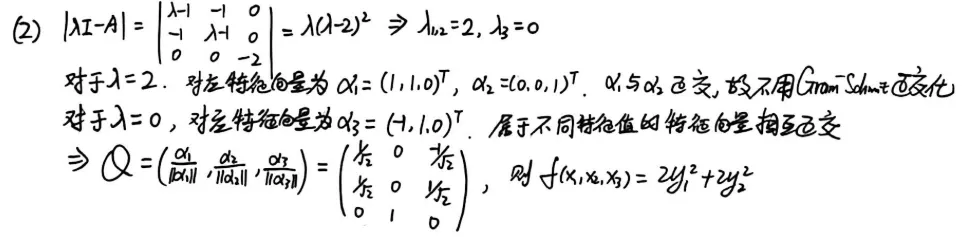 (2) |λI-A| = | λ-1 -1 0 ; -1 λ-1 0 ; 0 0 -2 | = λ(λ-2)² ⇒ λ₁,₂=2, λ₃=0
对于λ=2. 对应特征向量为 α₁=(1,1,0)ᵀ, α₂=(0,0,1)ᵀ. α₁与α₂正交, 故不用Gram-Schmit正交化
对于λ=0, 对应特征向量为α₃=(-1,1,0)ᵀ. 属于不同特征值的特征向量相互正交
⇒ Q = (α₁/||α₁||, α₂/||α₂||, α₃/||α₃||) = ( 1/√2 0 -1/√2 ; 1/√2 0 1/√2 ; 0 1 0 ), 则 f(x₁,x₂,x₃) = 2y₁²+2y₂²